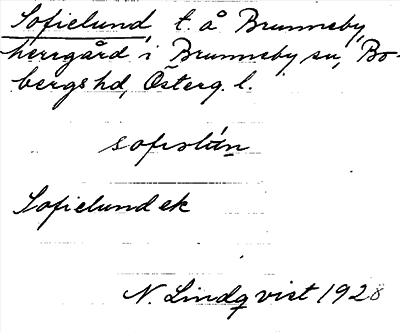 Sofielund, t. å Brunneby
herrgård i Brunneby sn, Bo-
bergs hd, Österg. l.
sofiəlún
Sofielund ek
N. Lindqvist 1928